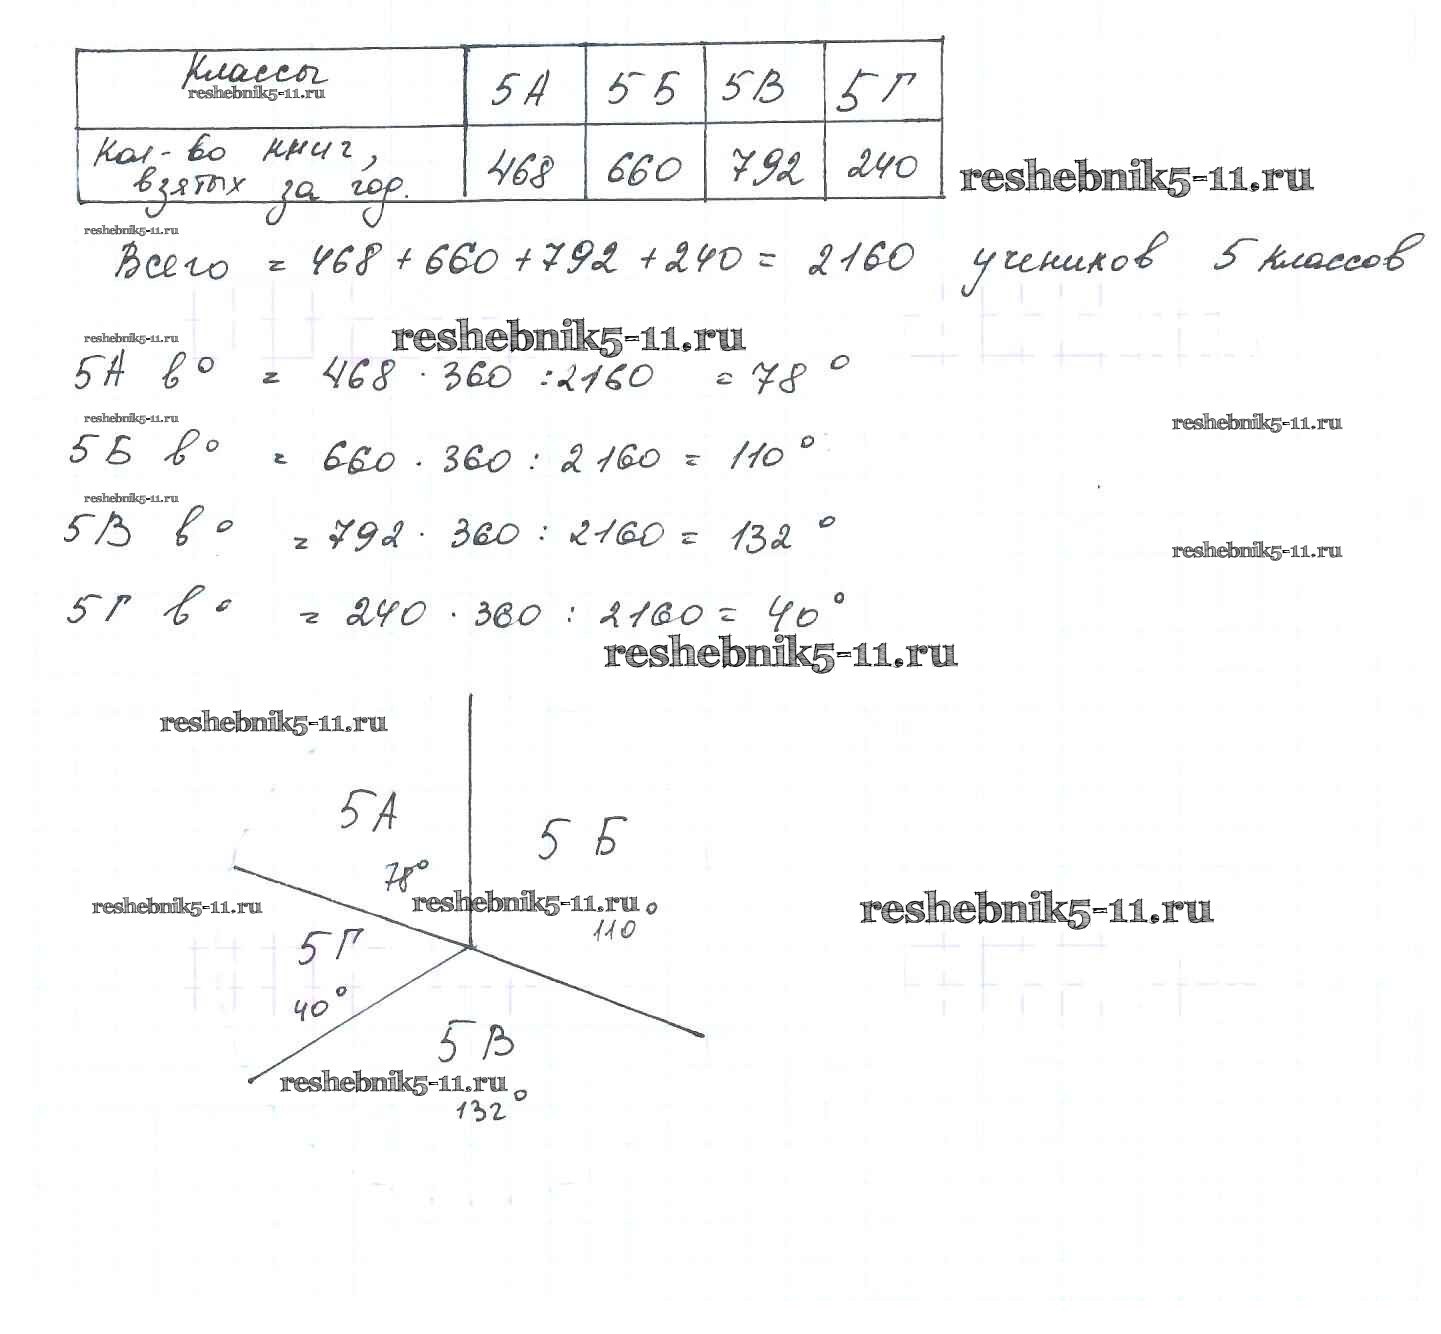 Классы 5А 5Б 5В 5Г
reshebnik5-11.ru
Кол-во книг, взятых за год. 468 660 792 240
reshebnik5-11.ru
reshebnik5-11.ru
Всего = 468 + 660 + 792 + 240 = 2160 учеников 5 классов
reshebnik5-11.ru
reshebnik5-11.ru
5А в° = 468 · 360 : 2160 = 78°
reshebnik5-11.ru
reshebnik5-11.ru
5Б в° = 660 · 360 : 2160 = 110°
reshebnik5-11.ru
5В в° = 792 · 360 : 2160 = 132°
reshebnik5-11.ru
5Г в° = 240 · 360 : 2160 = 40°
reshebnik5-11.ru
reshebnik5-11.ru
5А
5Б
78°
reshebnik5-11.ru
reshebnik5-11.ru
reshebnik5-11.ru
110°
5Г
40°
5В
reshebnik5-11.ru
132°